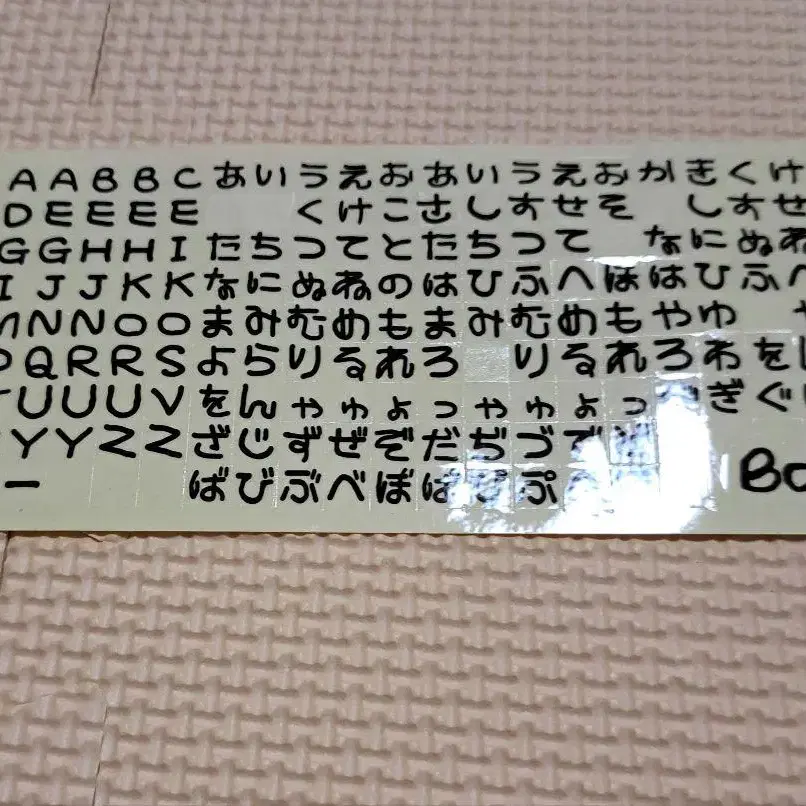 AABBCあいうえおあいうえおかきくけ
DEEEE くけこさしすせそ しすせ
GGHHIたちつてとたちつて なにぬね
IJJKKなにぬねのはひふへほはひふへ
MNNOOまみむめもまみむめもやゆ
PQRRSよらりるれろ りるれろわをん
TUUUVをんゃゅょっゃゅょっ ぎぐ
YYZZざじずぜぞだぢづで
ー ばびぶべぼぱぴぷ Bo